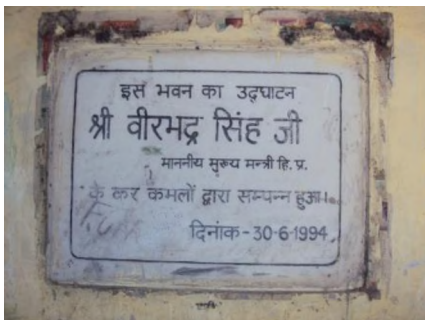 इस भवन का उद्घाटन
श्री वीरभद्र सिंह जी
माननीय मुख्य मन्त्री हि. प्र.
के कर कमलों द्वारा सम्पन्न हुआ।
दिनांक - 30-6-1994